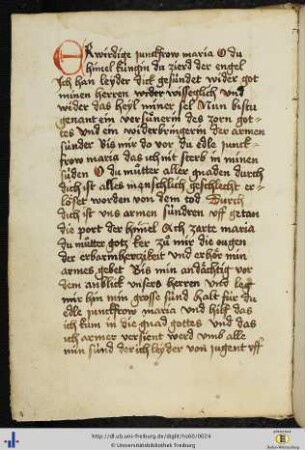 Erwirdige junckfrow maria O du
himel kúngin du zierd der engel
Ich han leyder dick gesúndet wider got
minen herren wider wisseglich und
wider das heyl miner sel Nun bistu
genant ein versúnerin des zorn got-
tes und ein widerbringerin der armen
súnder bis mir do vor du edle junck-
frow maria das ich nit sterb in minen
súden O du mútter aller gnaden durch
dich ist alles menschlich geschlecht er-
lóset worden von dem tod Durch
dich ist uns armen súndren uff getan
die port der himel Ach zarte maria
du mútter gotz ker zú mir die ougen
der erbarmherczikeit und erhór min
armes gebet Bis min andáchtig vor
dem anblick unsers herren und leg
mir hin min grosse súnd halt fúr du
edle junckfrow maria und hilf das
ich kum in die gnad gottes und das
ich armer versient werd umb alle
min súnd der ich leyder von jugent uff
http://dl.ub.uni-freiburg.de/diglit/hs60/0024
© Universitätsbibliothek Freiburg